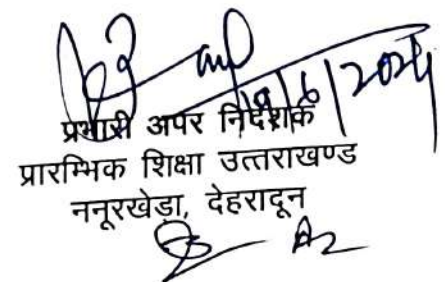 19/6/2024
प्रभारी अपर निदेशक
प्रारम्भिक शिक्षा उत्तराखण्ड
ननूरखेड़ा, देहरादून